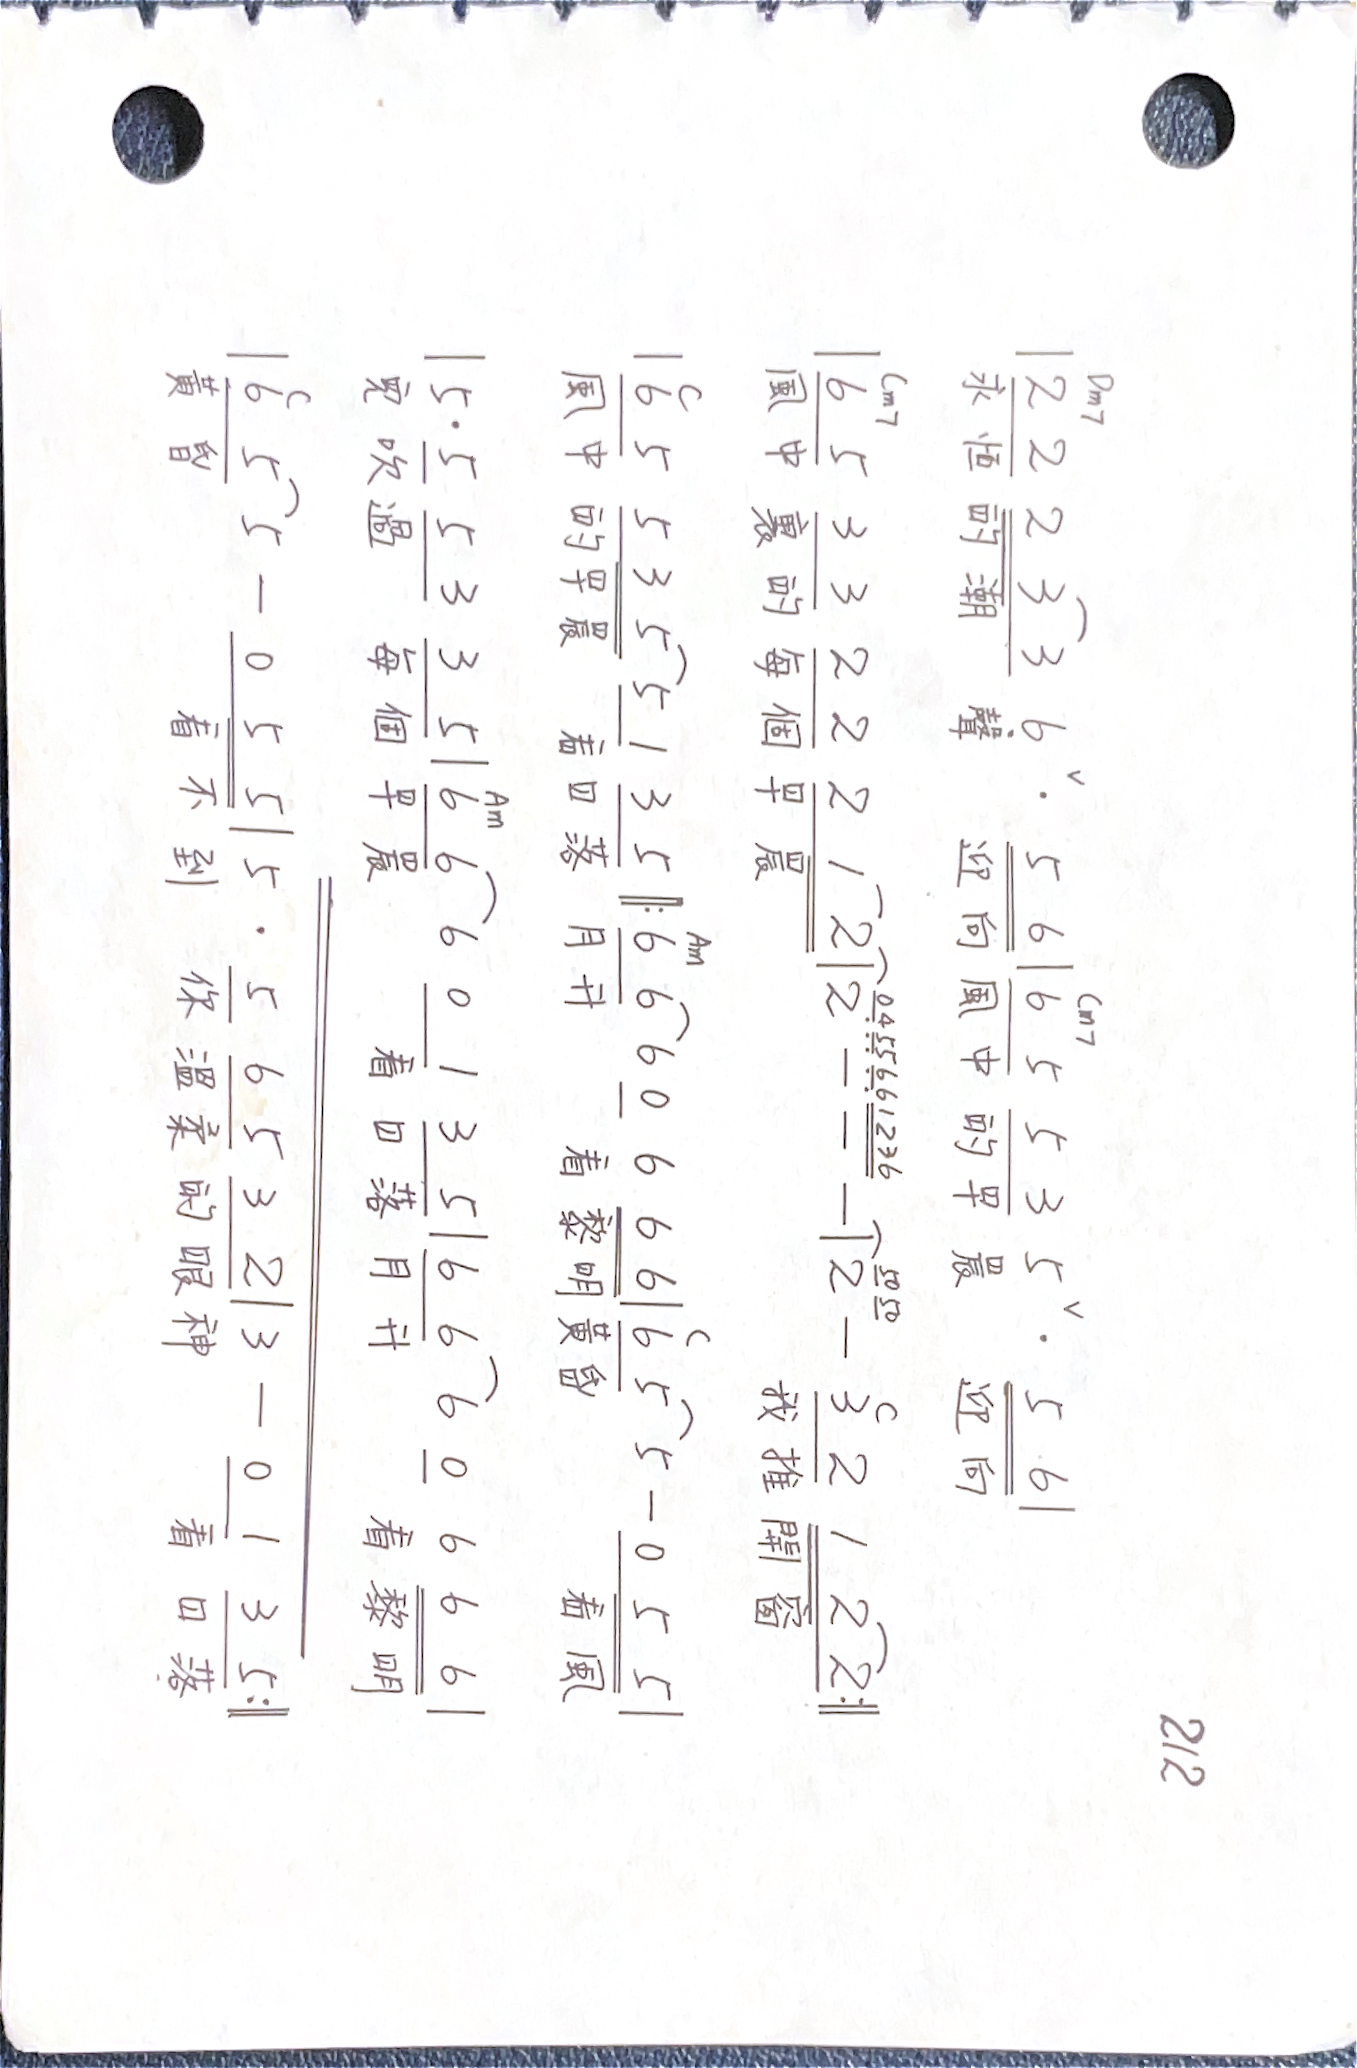 212
Dm7 Cm7
|2 2 2 3 3 6 ∨ · 5 6|6 5 5 3 5 ∨ · 5 6|
永恒的潮 聲 迎向風中的早晨 迎向
Cm7 0 4 5 5 6 6 1 2 3 6 50 50 C
|6 5 3 3 2 2 2 1 2|2 — — —|2 — 3 2 1 2 2:‖
風中裏的每個早晨 我推開窗
C Am C
|6 5 5 3 5 5 1 3 5‖:6 6 6 0 6 6 6|6 5 5 — 0 5 5|
風中的早晨 看日落 月升 看黎明黃昏 看風
Am
|5·5 5 3 3 5|6 6 6 0 1 3 5|6 6 6 0 6 6 6|
兒吹過 每個早晨 看日落月升 看黎明
C
|6 5 5 — 0 5 5|5 · 5 6 5 3 2|3 — 0 1 3 5:‖
黃昏 看不到 你溫柔的眼神 看日落